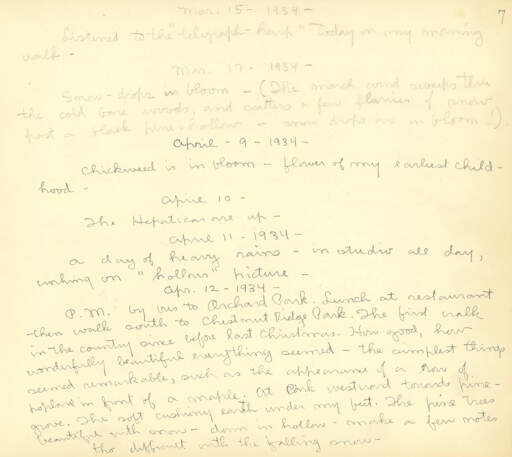 Mar. 15 - 1934 -
7
Listened to the "telegraph harp" today on my morning
walk -
Mar. 17 - 1934 -
Snow-drops in bloom - (The march wind sweeps thru
the cold bare woods, and scatters a few flurries of snow
past a black pine-hollow - snow drops are in bloom!)
April - 9 - 1934 -
Chickweed is in bloom - flower of my earliest child-
hood -
April 10 -
The Hepaticas are up -
April 11 - 1934 -
a day of heavy rains - in studio all day,
working on "hollow" picture -
Apr. 12 - 1934 -
P.M. by bus to Orchard Park. Lunch at restaurant
then walk south to Chestnut Ridge Park. The first walk
in the country since before last Christmas. How good, how
wonderfully beautiful everything seemed - the simplest things
seemed remarkable, such as the appearance of a row of
poplars in front of a maple. At Park westward towards pine-
grove. The soft cushiony earth under my feet. The pine trees
beautiful with snow - down in hollow - make a few notes
tho difficult with the falling snow -